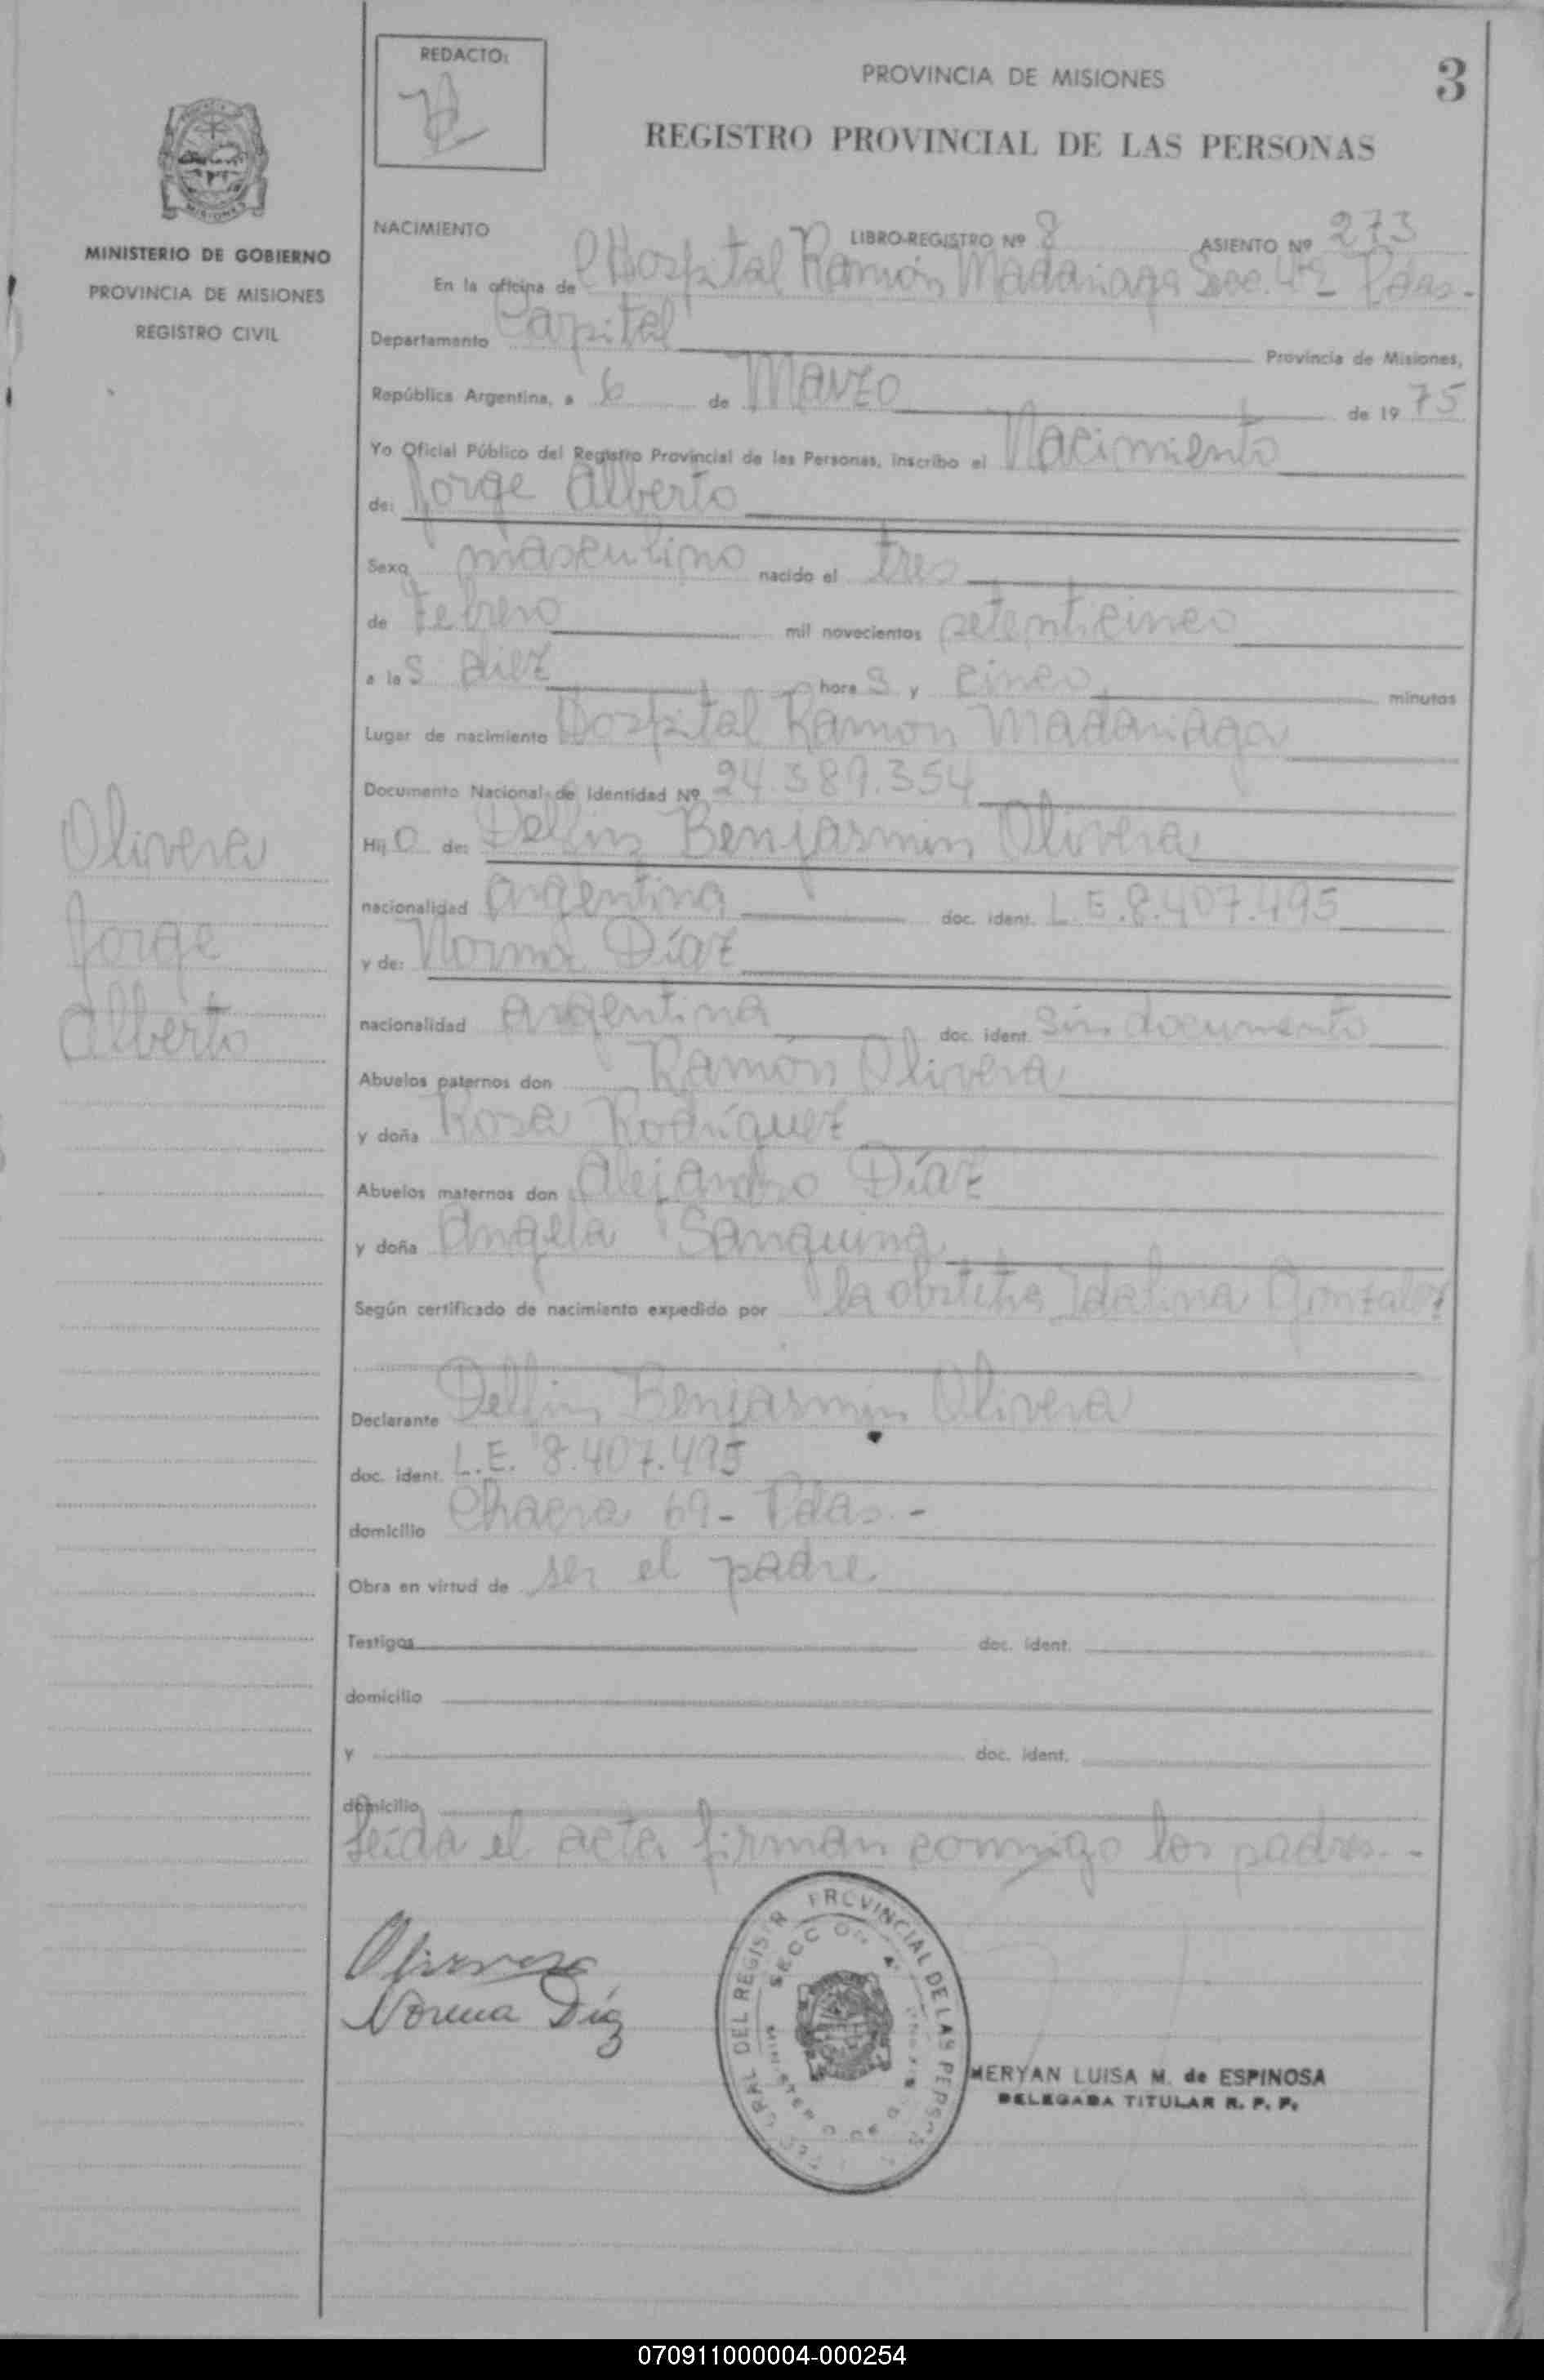 REDACTO:
PROVINCIA DE MISIONES
3
REGISTRO PROVINCIAL DE LAS PERSONAS
MISIONES
MINISTERIO DE GOBIERNO
PROVINCIA DE MISIONES
REGISTRO CIVIL
NACIMIENTO LIBRO-REGISTRO Nº 8 ASIENTO Nº 273
En la oficina de Hospital Ramón Madariaga Secc. 4ta Pdas.-
Departamento Capital Provincia de Misiones,
República Argentina, a 6 de Marzo de 1975
Yo Oficial Público del Registro Provincial de las Personas, inscribo el Nacimiento
de: Jorge Alberto
Sexo masculino nacido el tres
de Febrero mil novecientos setenticinco
a las diez horas y cinco minutos
Lugar de nacimiento Hospital Ramón Madariaga
Documento Nacional de Identidad Nº 24.389.354
Hijo de: Delfin Benjasmin Olivera
nacionalidad argentina doc. ident. L.E. 8.407.495
y de: Norma Díaz
nacionalidad argentina doc. ident. Sin documento
Abuelos paternos don Ramón Olivera
y doña Rosa Rodríguez
Abuelos maternos don Alejandro Díaz
y doña Angela Sanguina
Según certificado de nacimiento expedido por la obstetra Idelina Gonzalez
Declarante Delfin Benjasmin Olivera
doc. ident. L.E. 8.407.495
domicilio Chacra 69- Pdas.-
Obra en virtud de ser el padre
Testigos doc. ident.
domicilio
y doc. ident.
domicilio
Leída el acta firman conmigo los padres.-
Olivera
Jorge
Alberto
Olivera
Norma Díaz
DEL REGISTR PROVINCIAL DE LAS PERSO
MERYAN LUISA M. de ESPINOSA
DELEGADA TITULAR R. P. P.
070911000004-000254